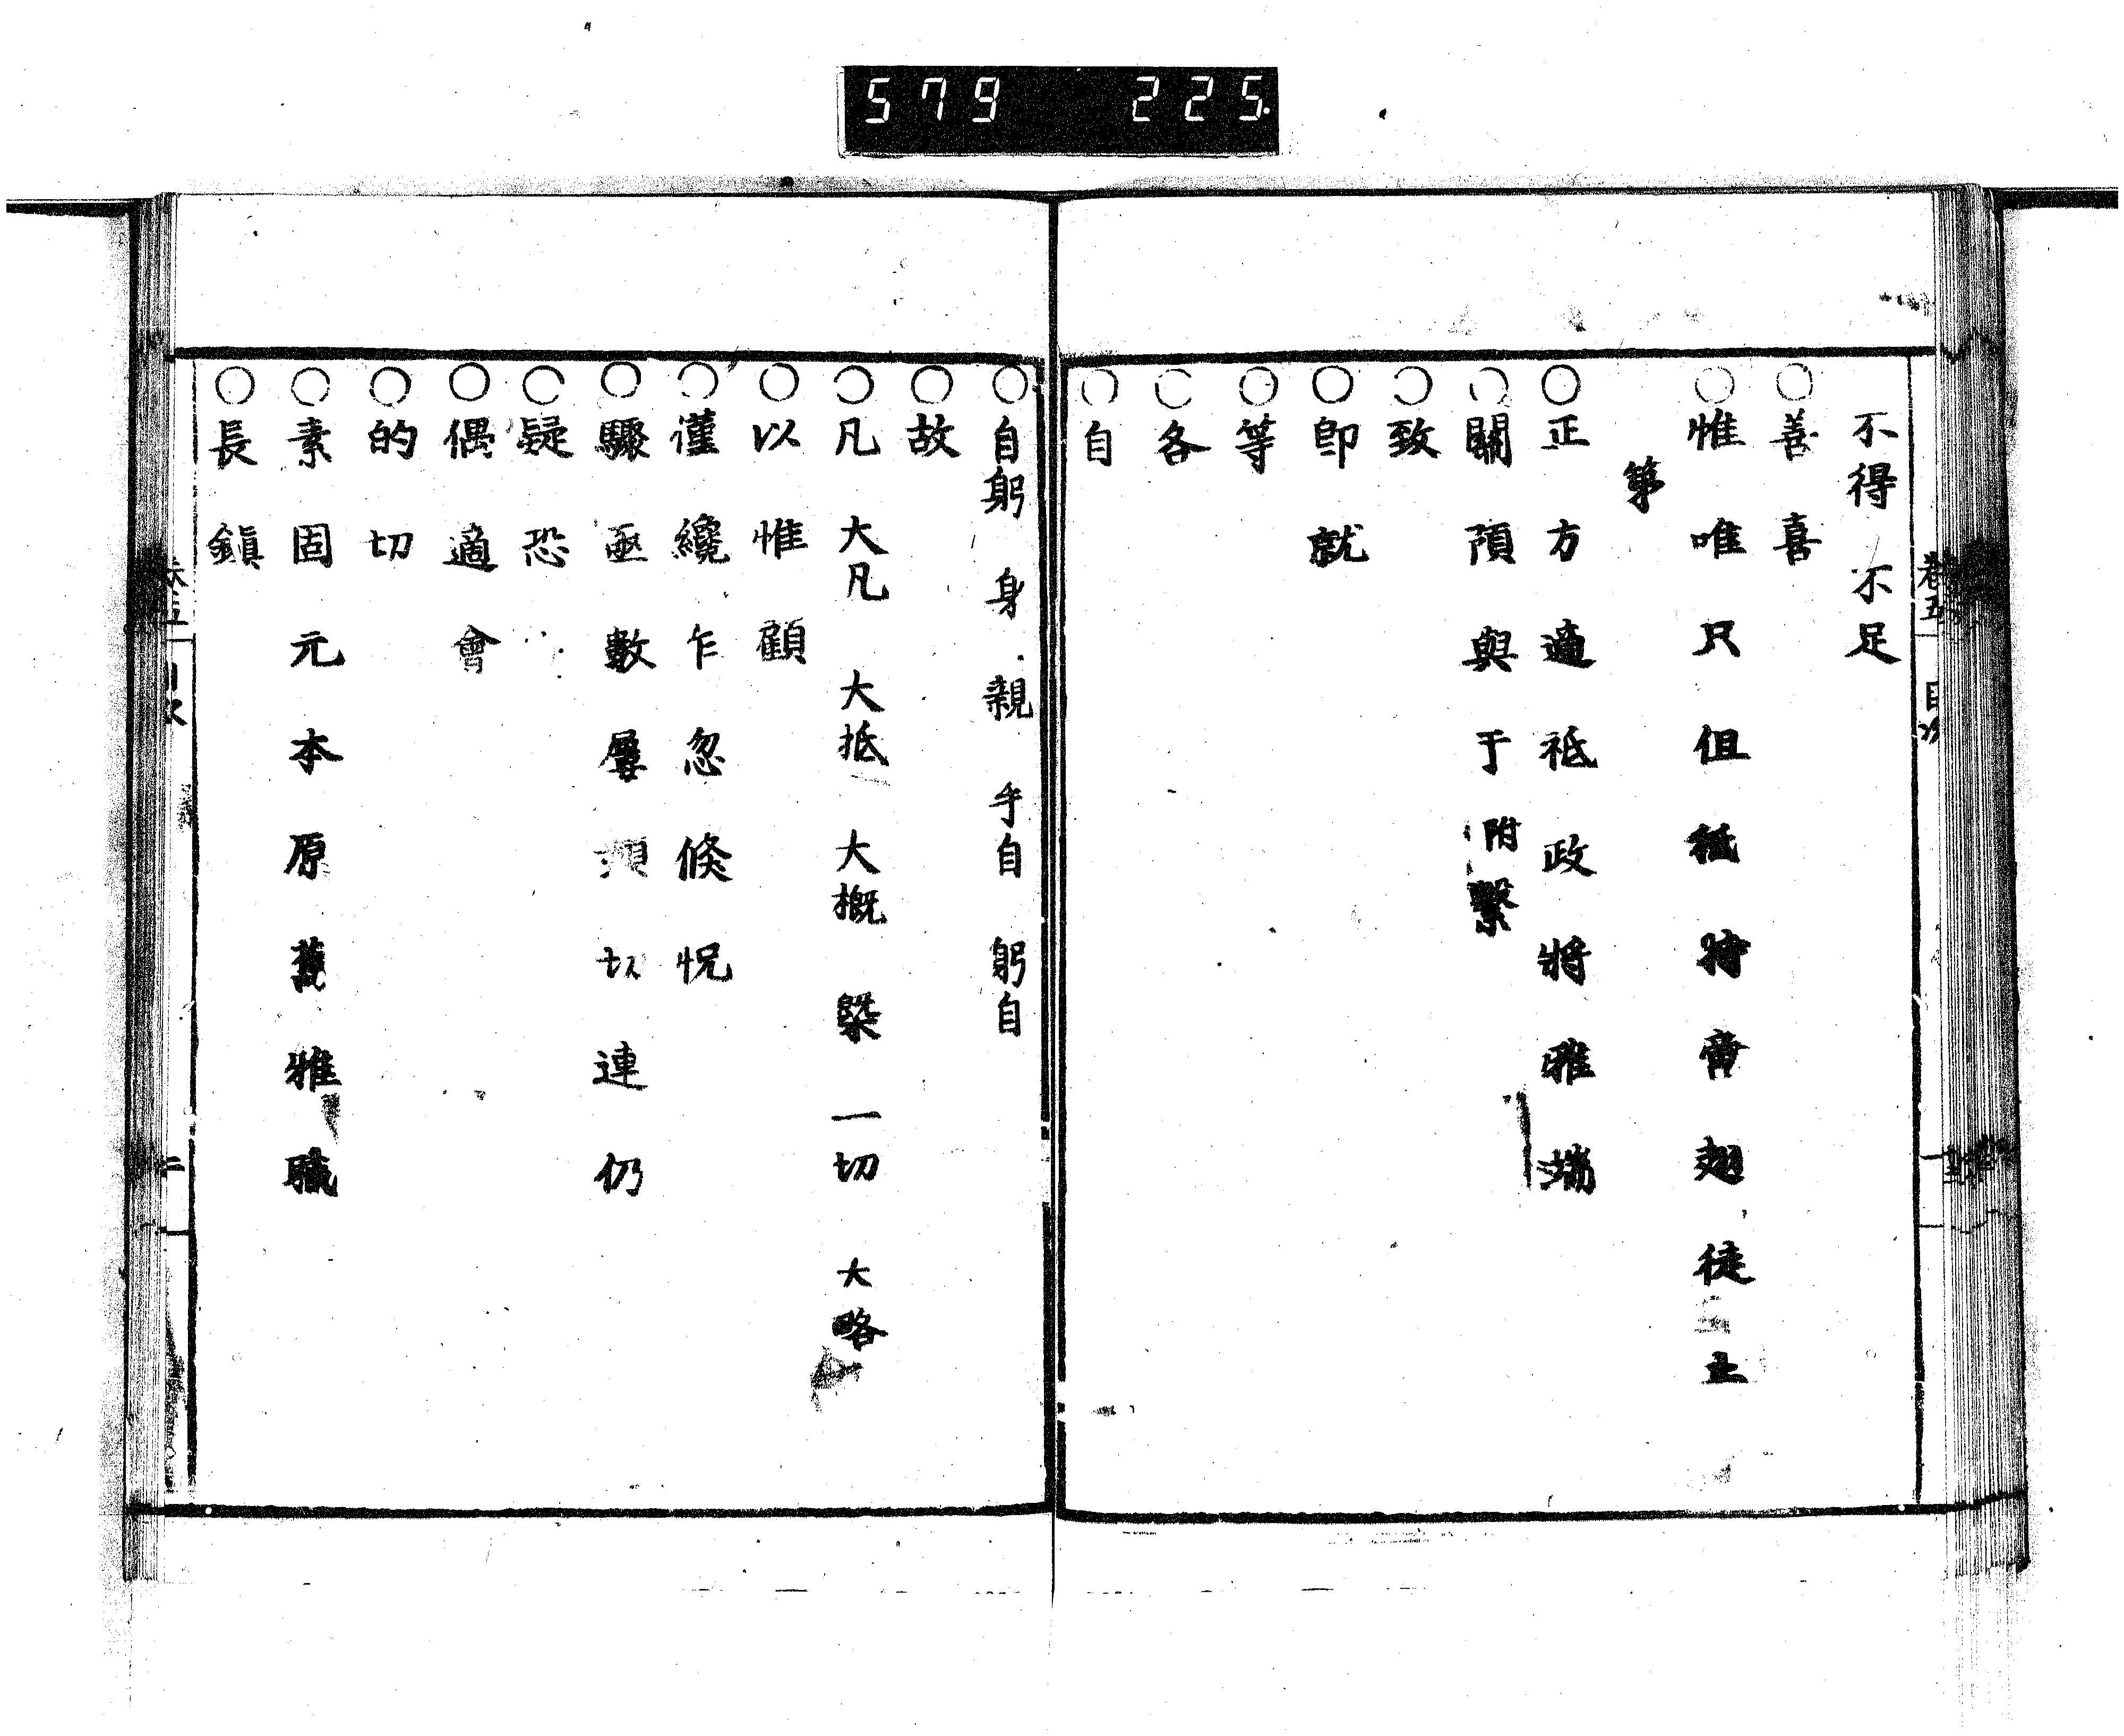 579 225.
卷五 目次
不得 不足
○善 喜
○惟 唯 只 但 秪 特 啻 翅 徒 止
第
○正 方 適 祗 政 將 雅 端
○關 預 與 于 附 繫
○致
○卽 就
○等
○各
○自
○自躬 身 親 手自 躬自
○故
○凡 大凡 大抵 大概 槩 一切 大略
○以 惟 顧
○僅 纔 乍 忽 倏 怳
○驟 亟 數 屢 頻 切 連 仍
○疑 恐
○偶 適 會
○的 切
○素 固 元 本 原 舊 雅 職
○長 鎭
二